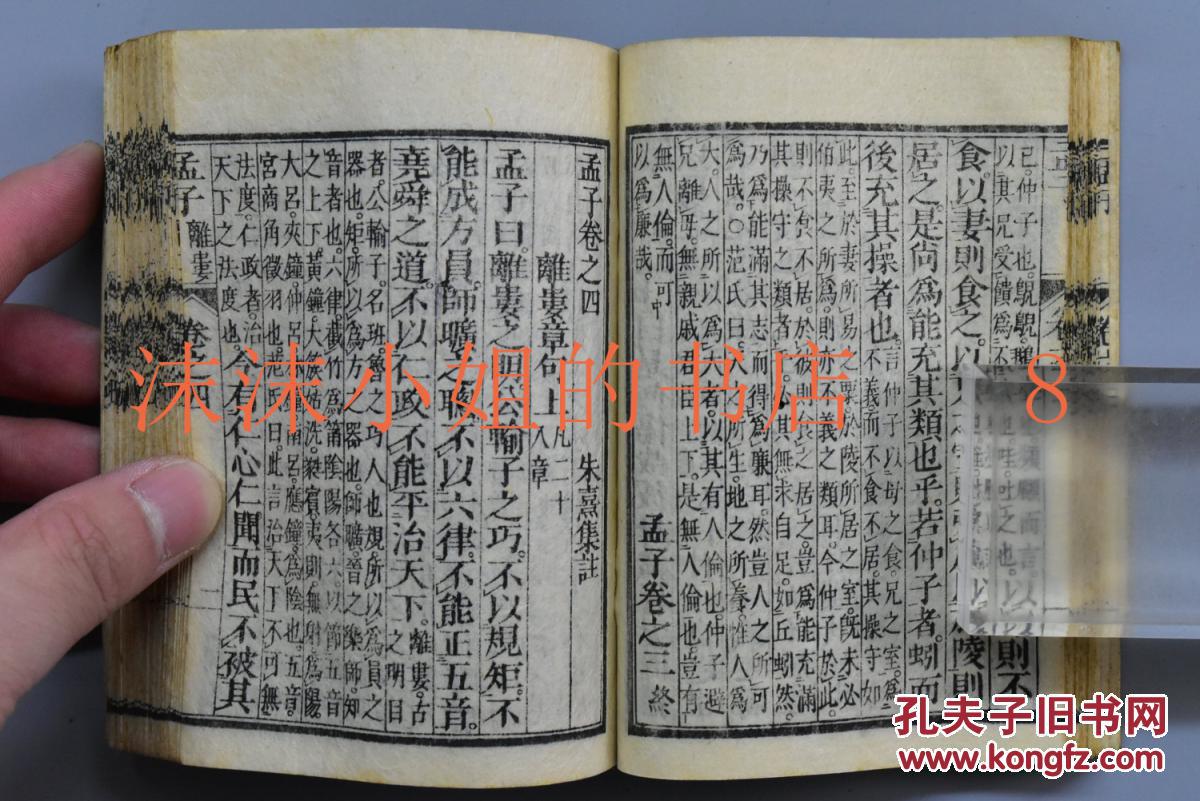 以其兄受饋爲不
食。以妻則食之。以
居之。是尚爲能充其類也乎。若仲子者。蚓而
後充其操者也。
言仲子以母之食。兄之室。爲
不義而不食不居。其操守如
此。至於妻所易之粟。於陵所居之室。既未必
伯夷之所爲。則亦不義之類耳。今仲子於此。
則不食不居。於彼則食之居之。豈爲能充滿
其操守之類者哉。必其無求自足。如丘蚓然。
乃爲能滿其志而得爲廉耳。然豈人之所可
爲哉。○范氏曰。天之所生。地之所養。惟人爲
大。人之所以爲大者。以其有人倫也。仲子避
兄離母。無親戚君臣上下。是無人倫也。豈有
無人倫。而可
以爲廉哉。
孟子卷之三 終
孟子卷之四
朱熹集註
離婁章句上 凡二十
八章
孟子曰。離婁之明。公輸子之巧。不以規矩。不
能成方員。師曠之聰。不以六律。不能正五音。
堯舜之道。不以仁政。不能平治天下。
離婁。古
之明目
者。公輸子。名班。魯之巧人也。規。所以爲員之
器也。矩。所以爲方之器也。師曠。晉之樂師。知
音者也。六律。截竹爲筩。陰陽各六。以節五音
之上下。黃鐘。大簇。姑洗。蕤賓。夷則。無射。爲陽。
大呂。夾鐘。仲呂。林鐘。南呂。應鐘。爲陰也。五音。
宮商角徵羽也。范氏曰。此言治天下不可無
法度。仁政者。治
天下之法度也。
今有仁心仁聞而民不被其
孟子 離婁
卷之四
沫沫小姐的书店 8
孔夫子旧书网
www.kongfz.com